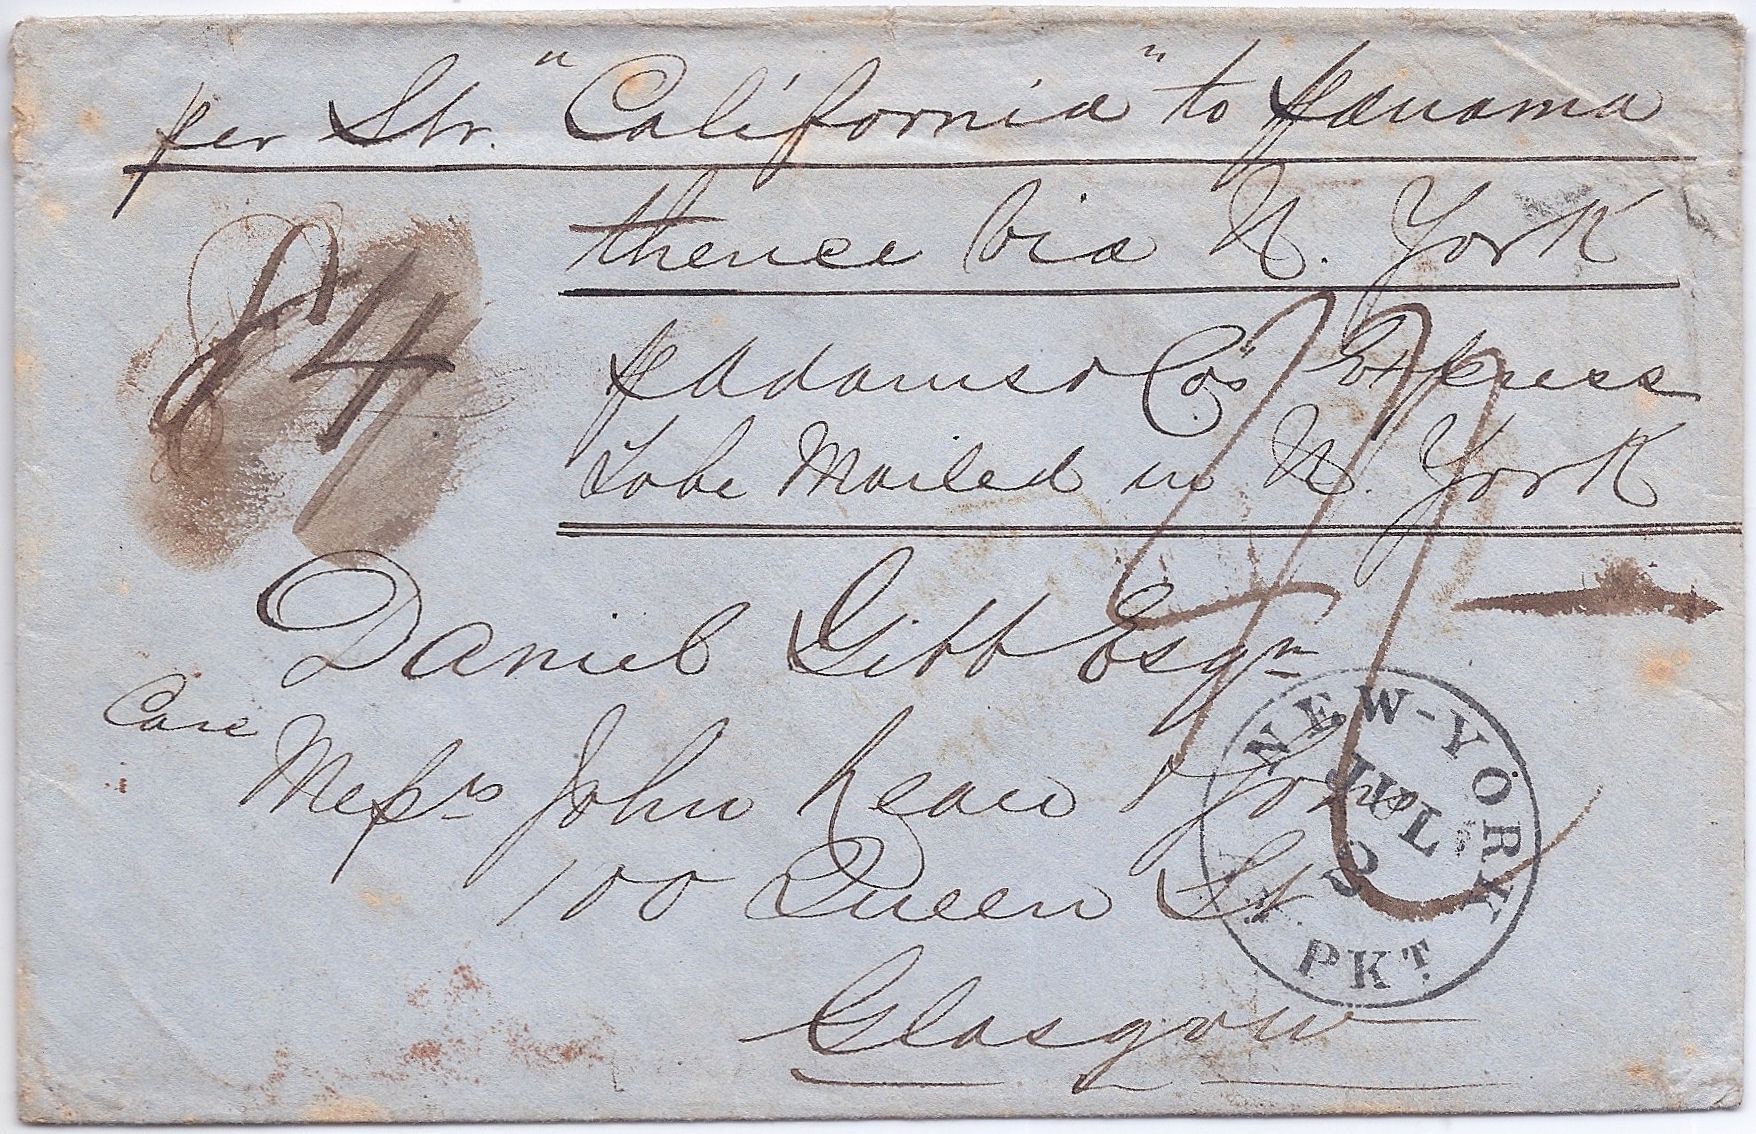 per Str. "California" to Panama
thence via N. York
p Adams & Co's Express
To be Mailed in N. York
£4
Daniel Gibb Esqr
Care
Messrs John & Sons
100 Queen St
Glasgow
NEW-YORK
JUL
9
AM. PKT.